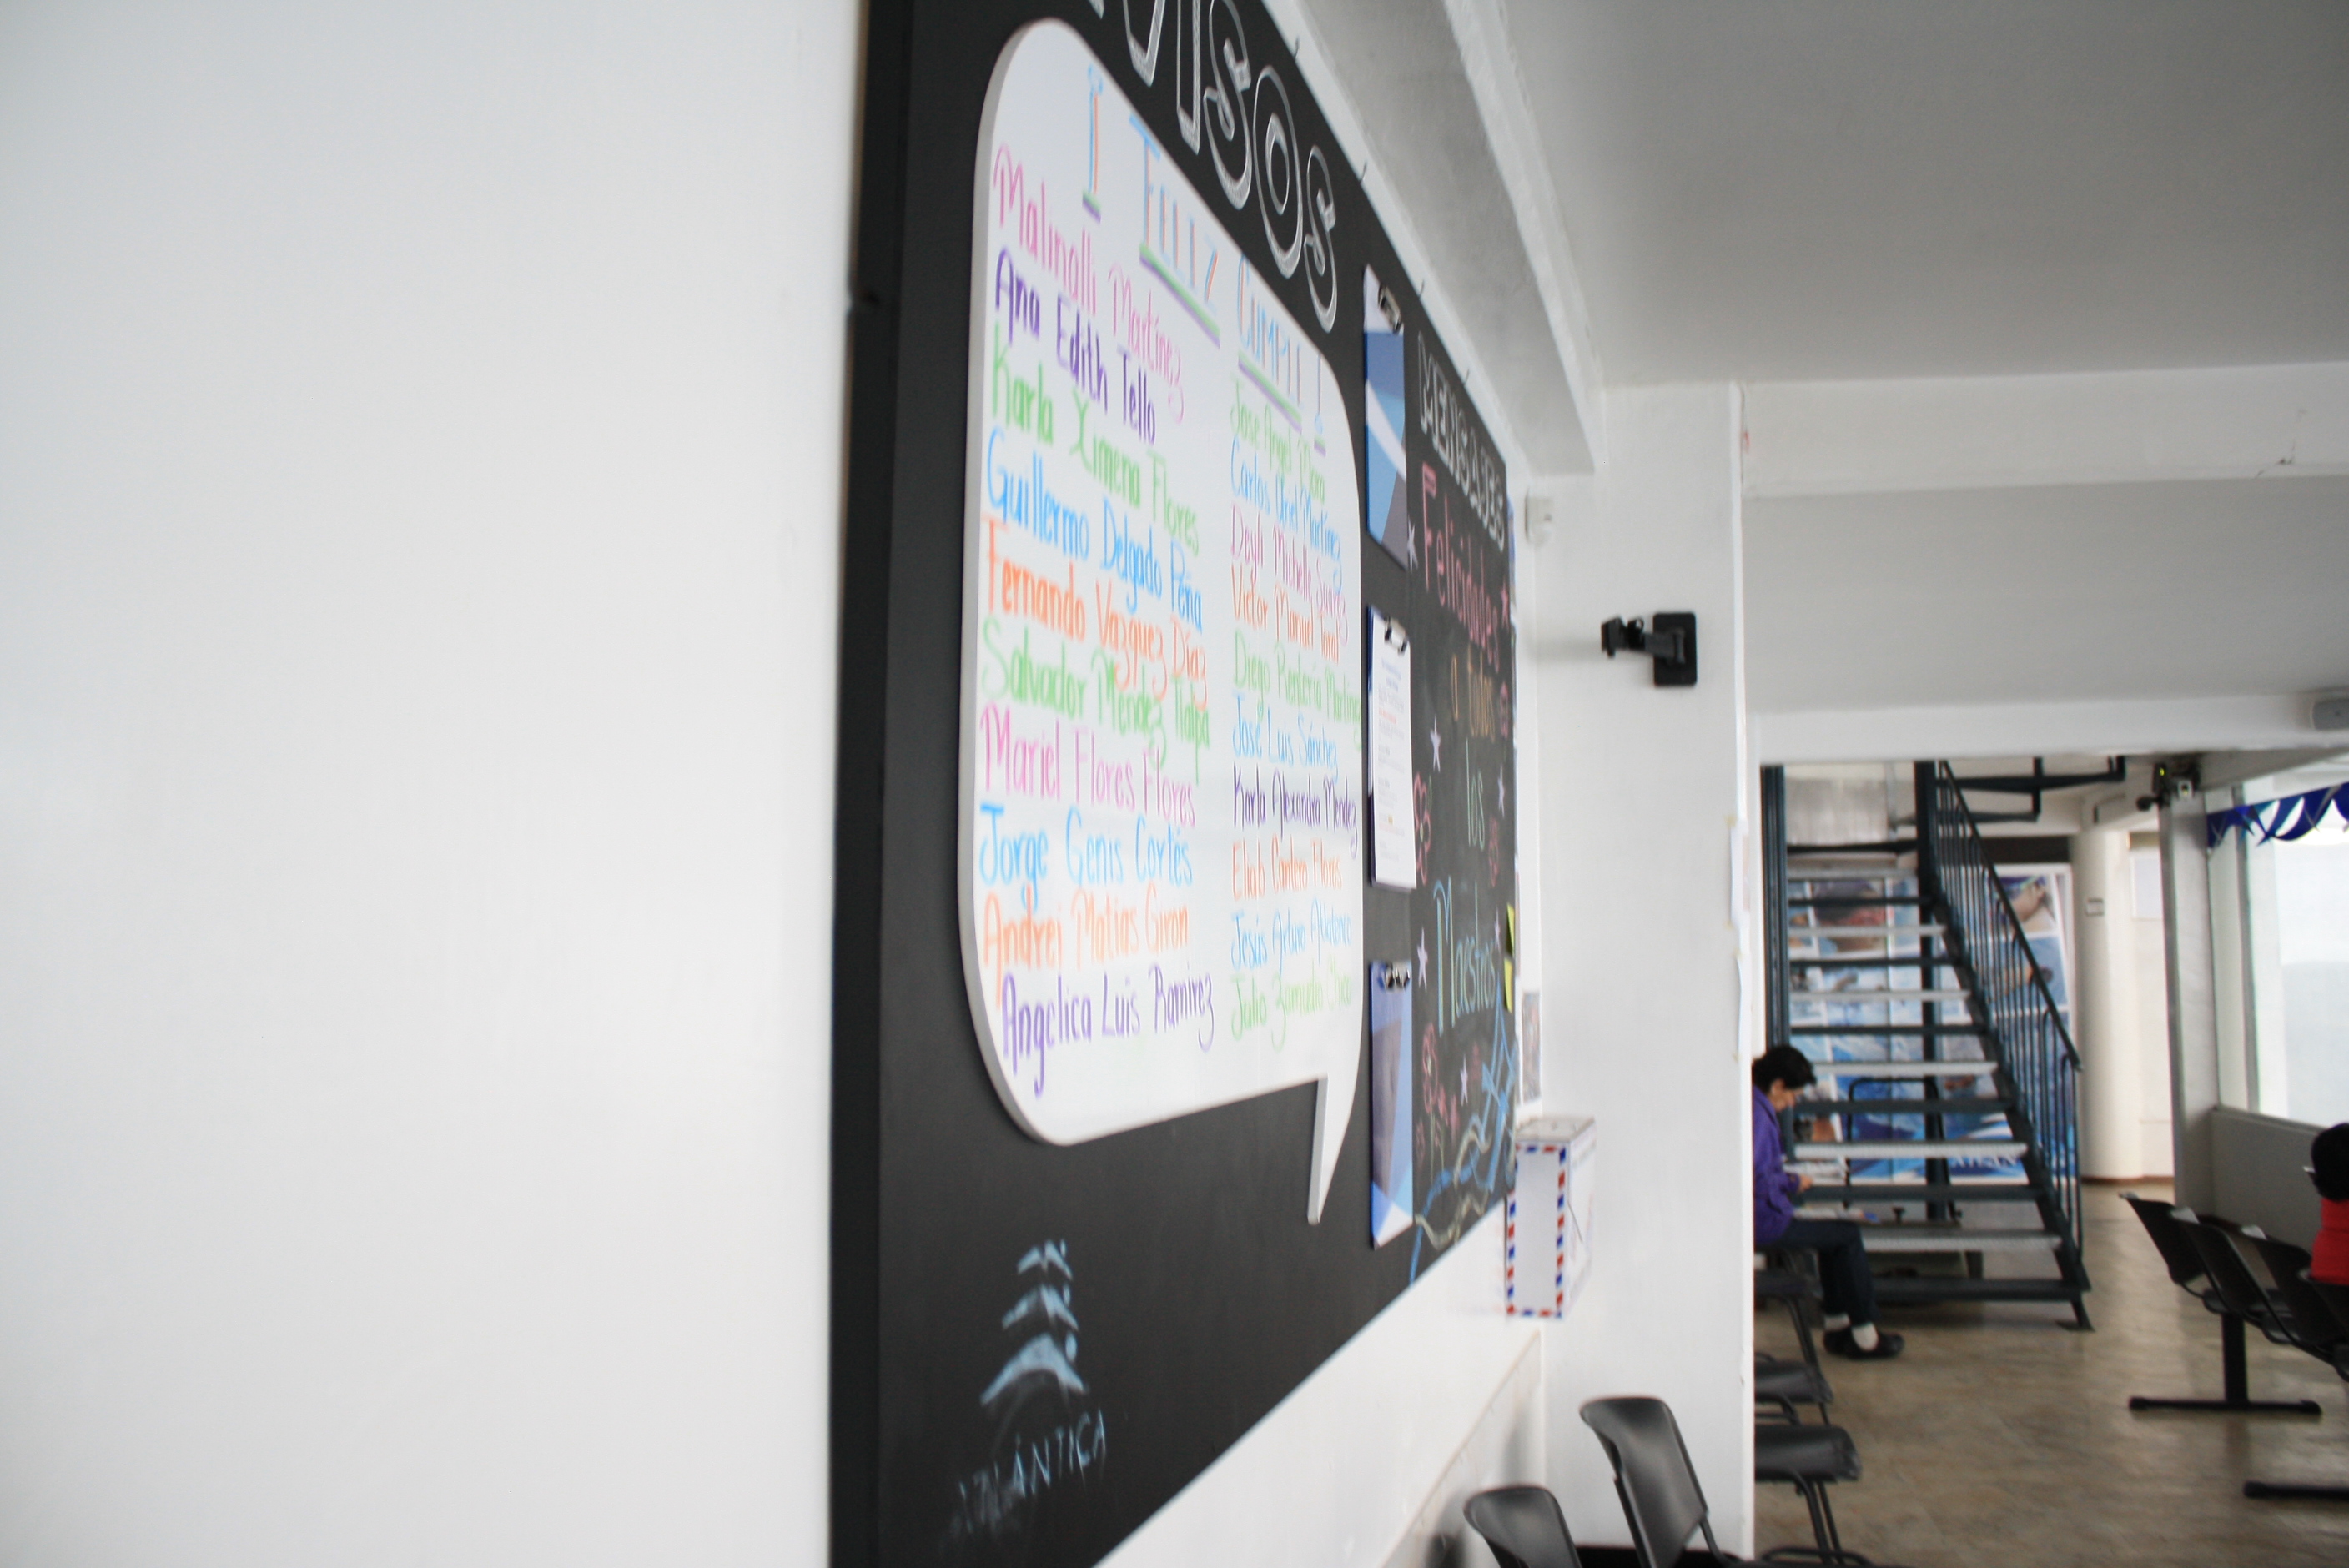 AVISOS
¡ FELIZ CUMPLE !
Malinalli Martínez
Ana Edith Tello
Karla Ximena Flores
Guillermo Delgado Peña
Fernando Vazquez Díaz
Salvador Méndez Tlalpa
Mariel Flores Flores
Jorge Genis Cortés
Andrei Matias Giron
Angelica Luis Ramirez
Jose Angel
Carlos Uriel Martínez
Deyli Michelle Suarez
Victor Manuel Toral
Diego Rentería Martinez
José Luis Sánchez
Karla Alexandra Méndez
Eliab Cantero Flores
Jesús Arturo
Julio Zamudio
ATLÁNTICA
MENSAJES
Felicidades
a todos
los
Maestros